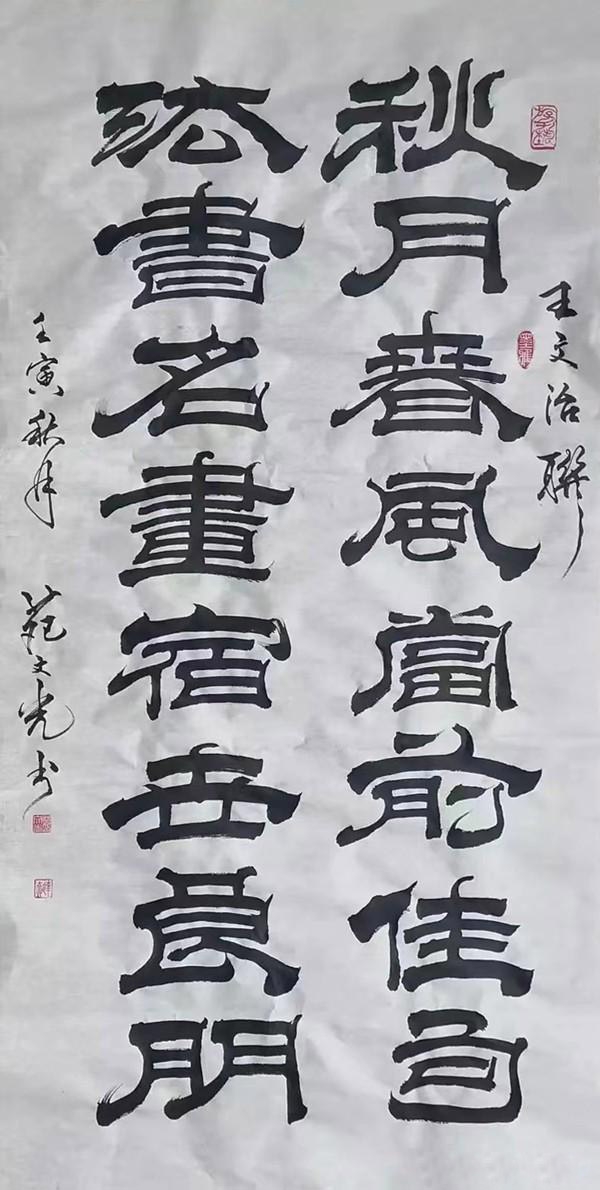 王文治聯
秋月春風當前佳句
法書名畫宿世良朋
壬寅秋月 苑文光书